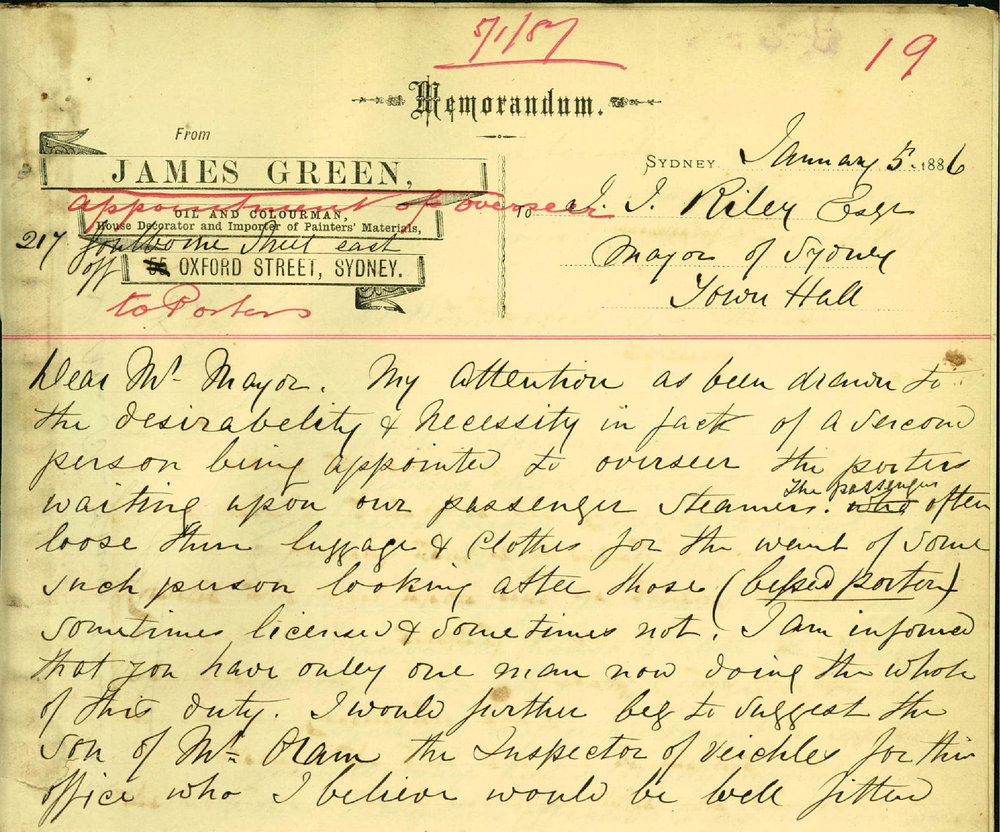 5/1/87
19
Memorandum.
From
JAMES GREEN,
appointment of overseer
OIL AND COLOURMAN,
House Decorator and Importer of Painters' Materials,
217 Goulborne Street east
off 55 OXFORD STREET, SYDNEY.
to Porters
SYDNEY January 5 1886
TO J. Riley Esqr
Mayor of Sydney
Town Hall
Dear Mr. Mayor. My attention as been drawn to
the desirabelity & Necessity in fact of a Second
person being appointed to overseer the porters
waiting upon our passenger Steamers. The passengers often
loose their luggage & Clothes for the want of some
such person looking after those ( porter)
sometimes licensed & sometimes not. I am informed
that you have onley one man now doing the whole
of this duty. I would further beg to suggest the
Son of Mr. Oram the Inspector of Veichles for this
office who I believe would be well fitted